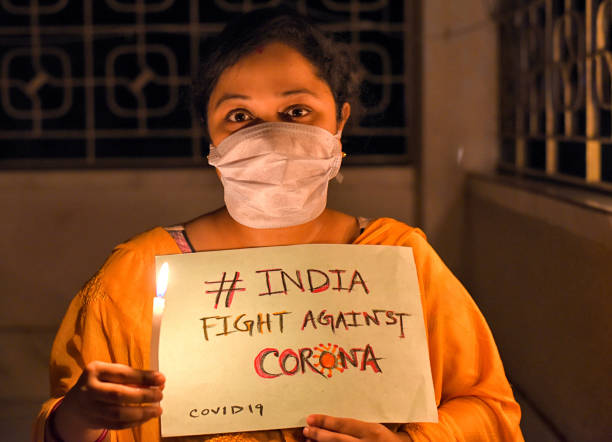 # INDIA
FIGHT AGAINST
CORONA
COVID19